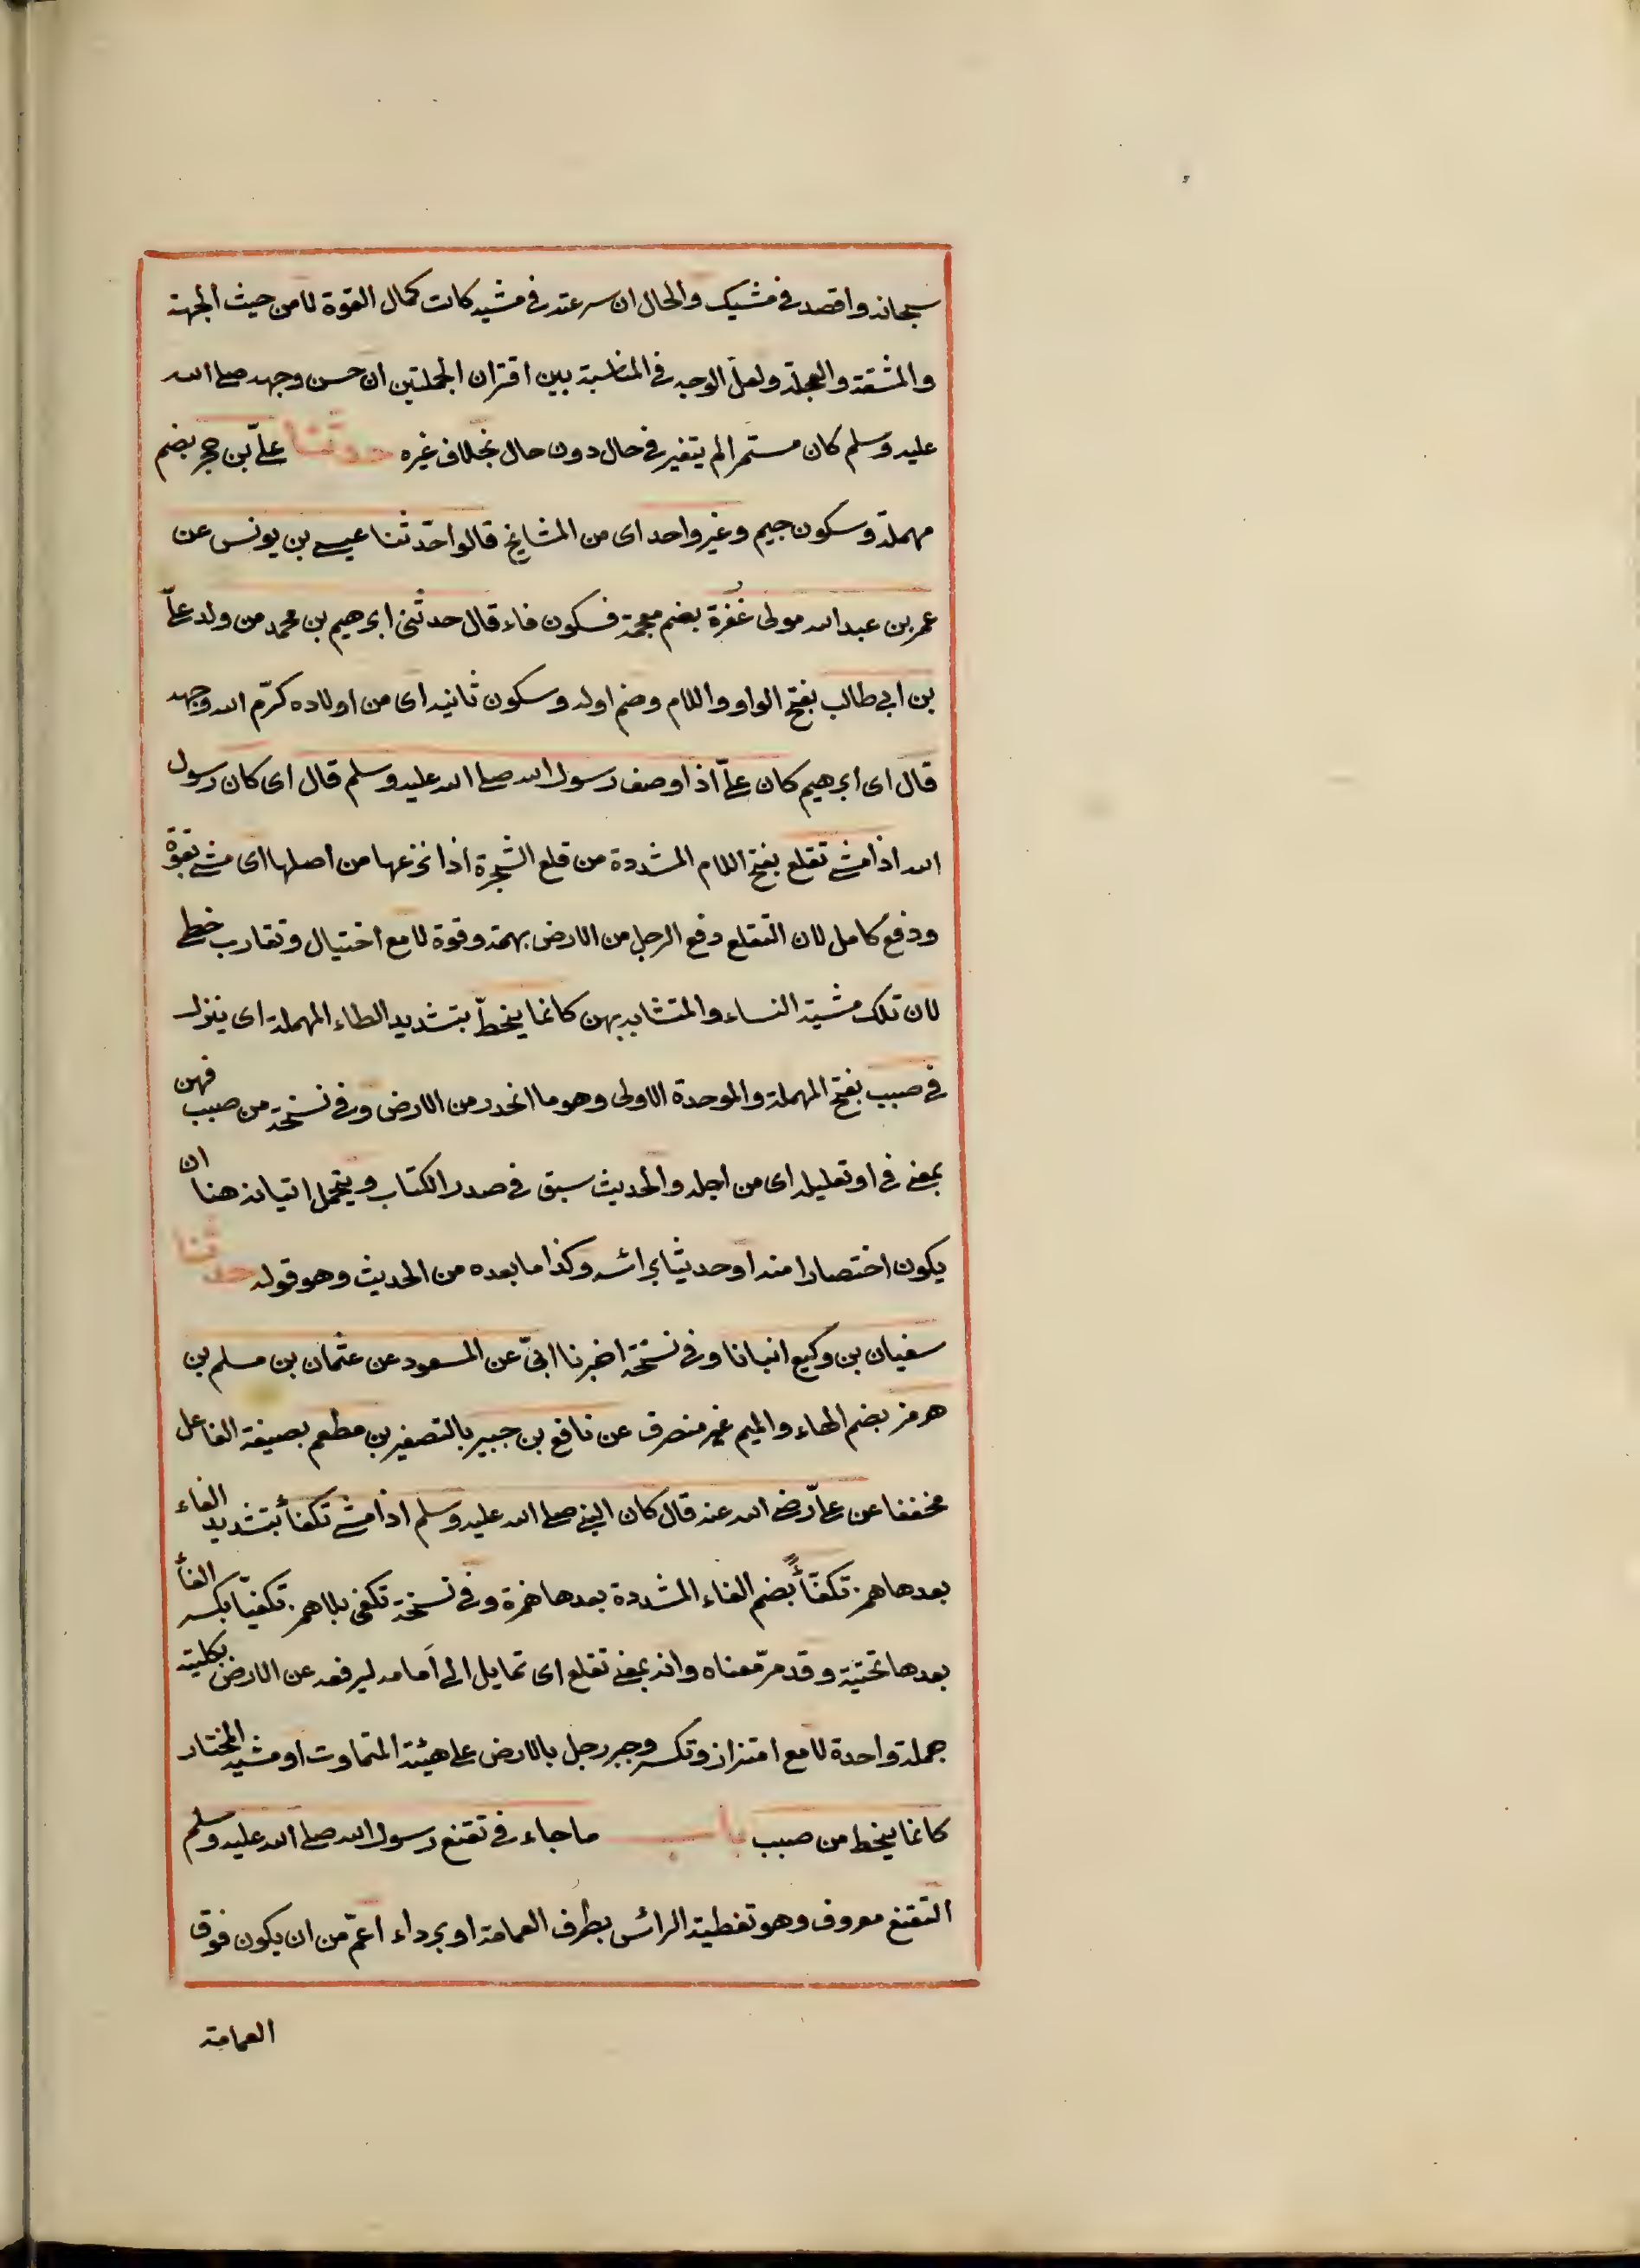 سبحانه واقصد في مشيك والحال ان سرعته في مشيه كانت كمال القوة لا من حيث الجهة
والمشقة والعجلة ولعل الوجه في المناسبة بين اقتران الجملتين ان حسن وجهه صلى الله
عليه وسلم كان مستمرا لم يتغير في حال دون حال بخلاف غيره حدثنا علي بن حجر بضم
مهملة وسكون جيم وغير واحد اى من المشايخ قالوا حدّثنا عيسى بن يونس عن
عمر بن عبد الله مولى غُفرة بضم معجمة فسكون فاء قال حدثنى ابرهيم بن محمد من ولد علىّ
بن ابي طالب بفتح الواو واللام وضم اوله وسكون ثانيه اى من اولاده كرّم الله وجهه
قال اى ابرهيم كان علىّ اذا وصف رسول الله صلى الله عليه وسلم قال اى كان رسول
الله اذا مشى تقلع بفتح اللام المشددة من قلع الشجرة اذا نزعها من اصلها اى مشى بقوّة
ودفع كامل لان التقلع دفع الرجل من الارض بهمة وقوة لا مع اختيال وتقارب خطى
لان تلك مشية النساء والمتشابه بهن كانما ينحطّ بتشديد الطاء المهملة اى ينزل
في صبب بفتح المهملة والموحدة الاولى وهو ما انحدر من الارض وفي نسخة من صبب فهن
بمعنى في او تعليله اى من اجله والحديث سبق في صدر الكتاب ويحتمل اتيانه هنا ان
يكون اختصارا منه او حديثا برائسه وكذا ما بعده من الحديث وهو قوله حدثنا
سفيان بن وكيع انبانا وفي نسخة اخبرنا ابىّ عن المسعود عن عثمان بن مسلم بن
هرمز بضم الهاء والميم غير منصرف عن نافع بن جبير بالتصغير بن مطعم بصيغة الفاعل
مخففا عن علىّ رضى الله عنه قال كان النبي صلى الله عليه وسلم اذا مشى تكفأ بتشديد الفاء
بعدها همز تكفّأً بضم الفاء المشددة بعدها همزة وفي نسخة تكفى بلا همز تكفيّا بكسر الفأ
بعدها تحتية وقد مرّ معناه وانه بمعنى تقلع اى تمايل الى اَمامه ليرفعه عن الارض بكليته
جملة واحدة لا مع اهتزاز وتكسر وجر رجل بالارض على هيئة المتماوت او مشية المختار
كانما ينحط من صبب باب ما جاء في تقنع رسول الله صلى الله عليه وسلم
التقنع معروف وهو تغطية الرائس بطرف العمامة او برداء اعمّ من ان يكون فوق
العمامة